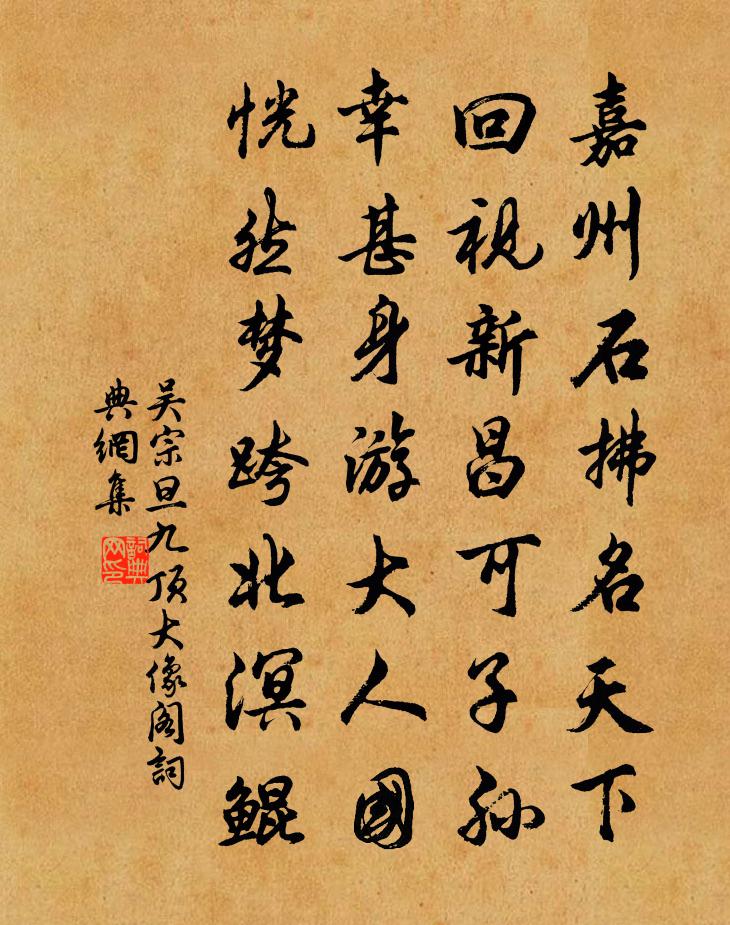 嘉州石拂名天下
回视新昌可子孙
幸甚身游大人國
恍然梦跨北溟鲲
吴宗旦九顶大像阁詞
典網集
詞典网印